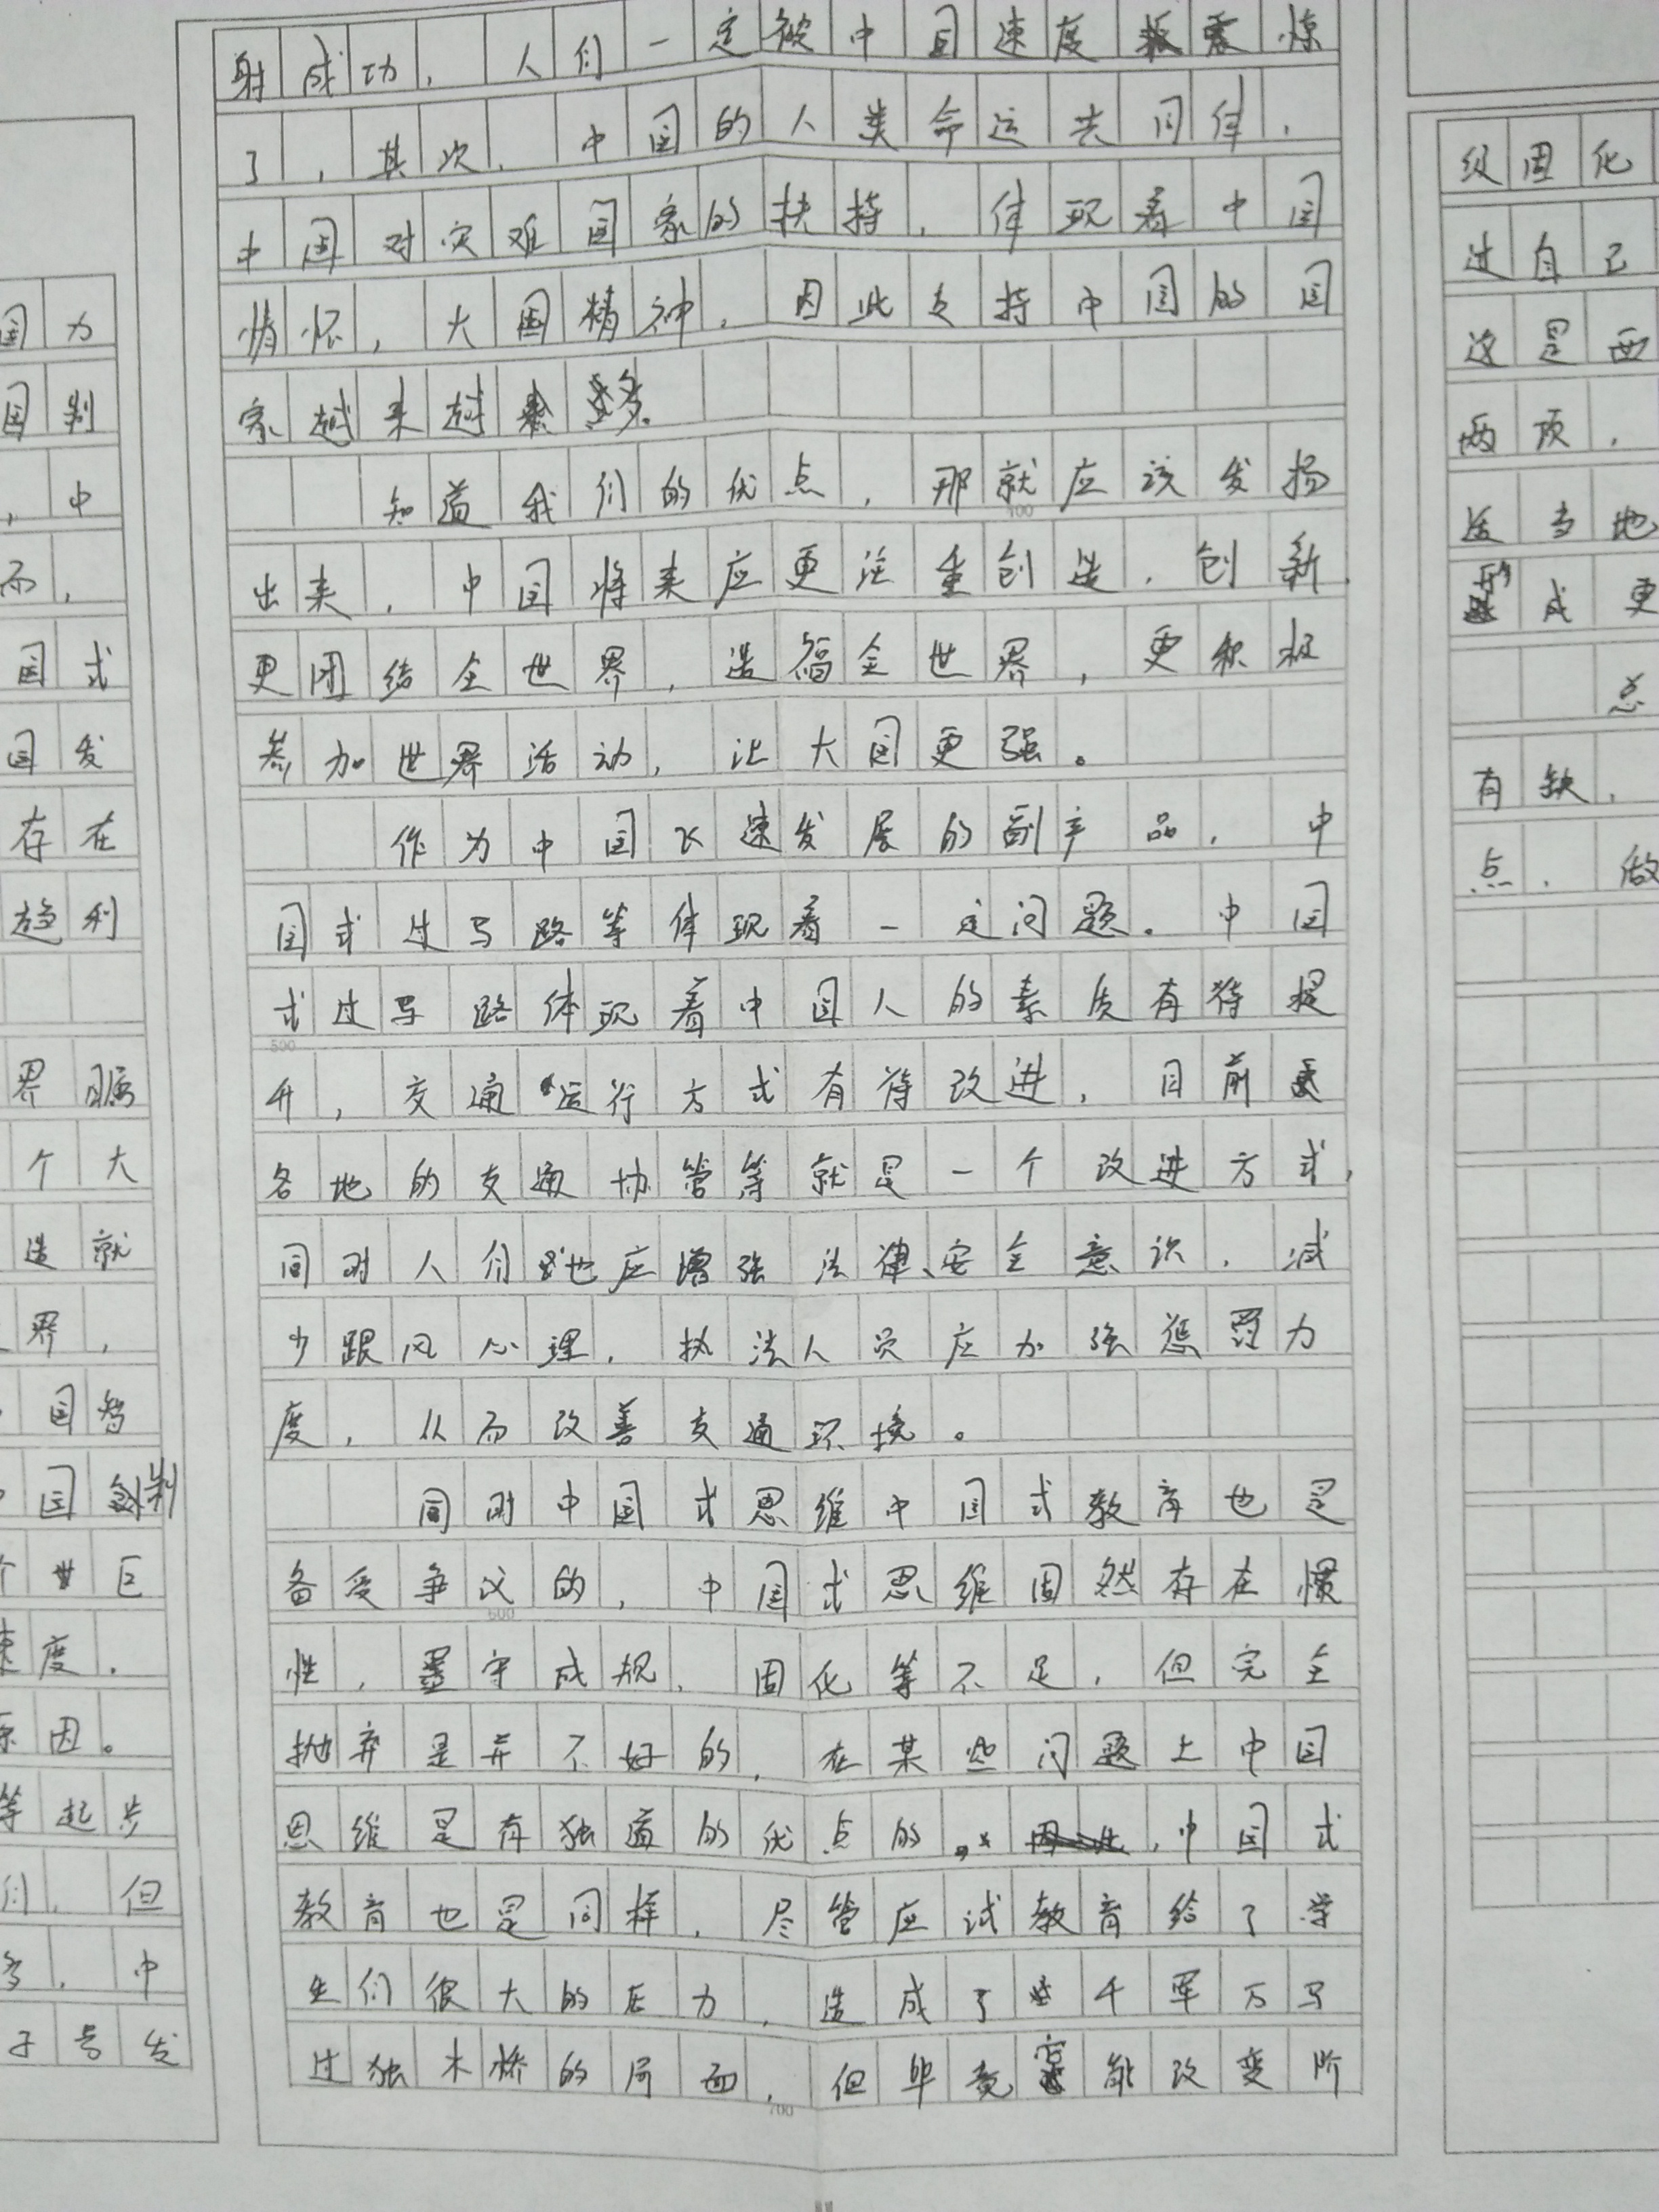 国 为
国 制
，中
而，
国 式
国 发
存 在
趋 利
界 瞩
个 大
造 就
界，
国 智
国 制
个 世 巨
速 度.
原 因。
等 起 步
们，但
多，中
子 号 发
射成功，人们一定被中国速度震惊
了，其次，中国的人类命运共同体，
中国对灾难国家的扶持，体现着中国
情怀，大国精神，因此支持中国的国
家越来越多。
知道我们的优点，那就应该发扬
出来，中国将来应更注重创造，创新，
更团结全世界，造福全世界，更积极
参加世界活动，让大国更强。
作为中国飞速发展的副产品，中
国式过马路等体现着一定问题。中国
式过马路体现着中国人的素质有待提
500
升，交通运行方式有待改进，目前
各地的交通协管等就是一个改进方式，
同时人们也应增强法律、安全意识，减
少跟风心理，执法人员应加强惩罚力
度，从而改善交通环境。
同时中国式思维中国式教育也是
备受争议的，中国式思维固然存在惯
600
性，墨守成规，固化等不足，但完全
抛弃是并不好的，在某些问题上中国
思维是有独道的优点的，中国式
教育也是同样，尽管应试教育给了学
生们很大的压力，造成了千军万马
过独木桥的局面，但毕竟能改变阶
700
级固化
过自己
这是西
两项，
适当地
形成更
总
有缺，
点，做